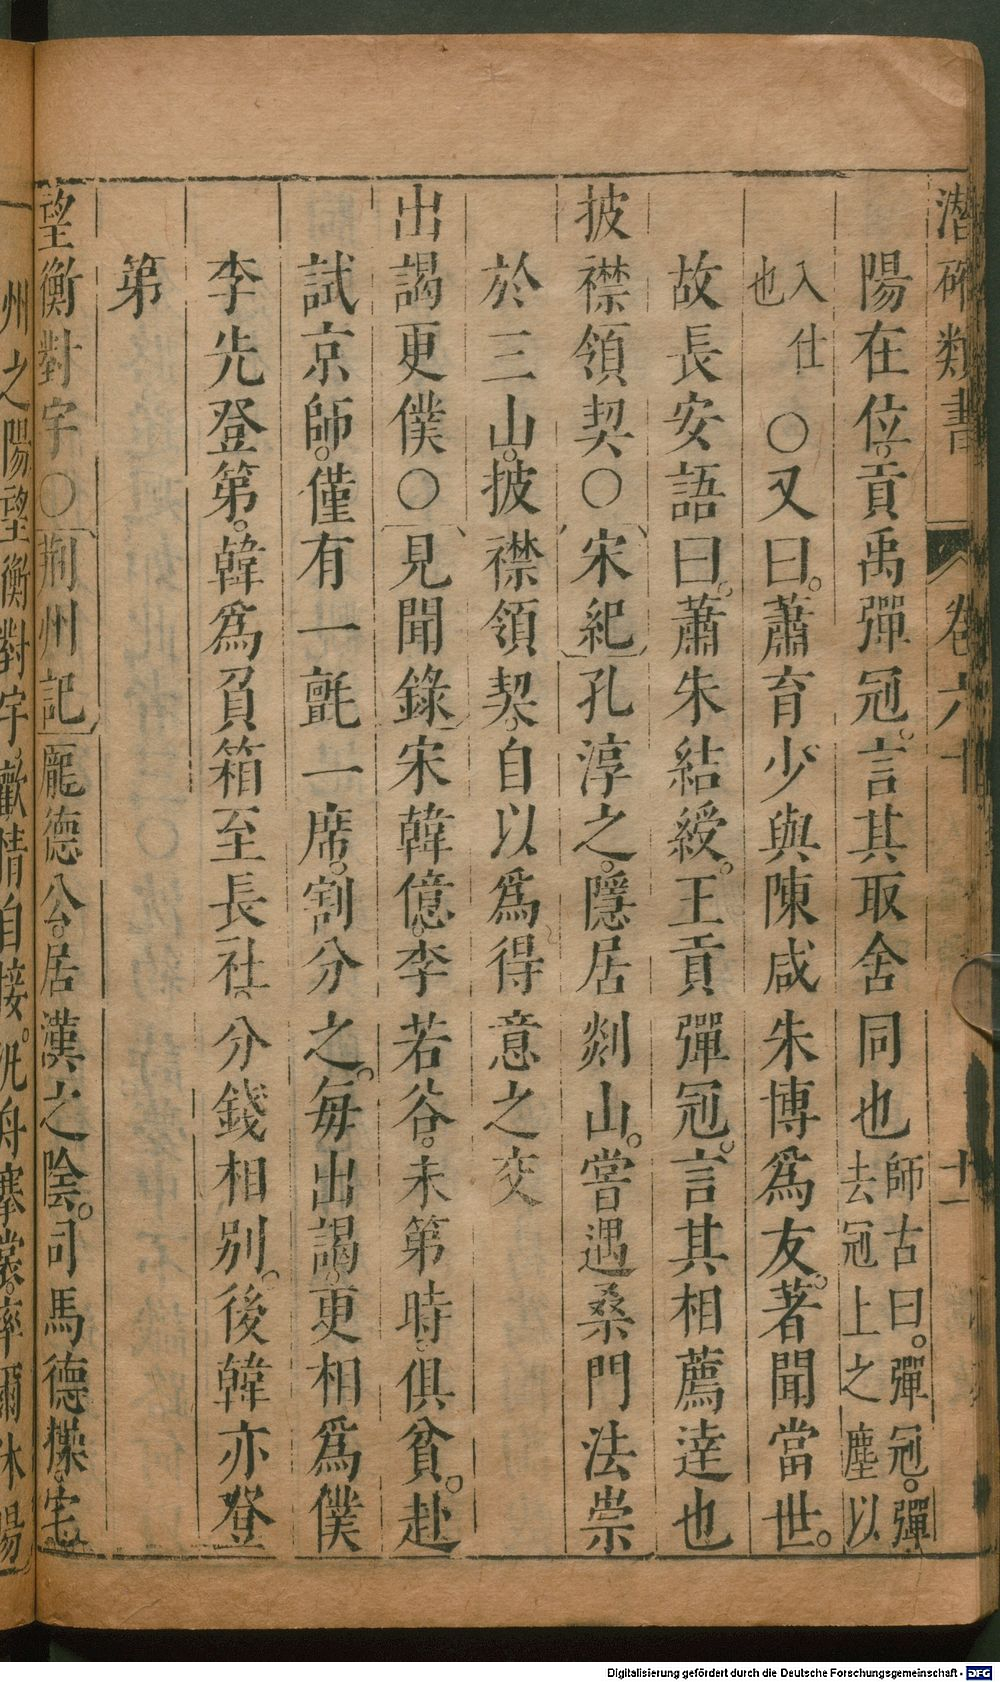 潛確類書 卷六十 十一
陽在位。貢禹彈冠。言其取舍同也師古曰。彈冠。彈去冠上之塵以
入仕也〇又曰。蕭育少與陳咸朱博爲友。著聞當世。
故長安語曰。蕭朱結綬。王貢彈冠。言其相薦達也
披襟領契〇宋紀孔淳之。隱居剡山。嘗遇桑門法崇
於三山。披襟領契。自以爲得意之交
出謁更僕〇見聞錄宋韓億。李若谷。未第時。俱貧。赴
試京師。僅有一氈一席。割分之。每出謁。更相爲僕
李先登第。韓爲負箱至長社。分錢相別。後韓亦登
第
望衡對宇〇荊州記龐德公。居漢之陰。司馬德操。宅
州之陽望衡對宇。歡情自接。泛舟褰裳。率爾休暢
Digitalisierung gefördert durch die Deutsche Forschungsgemeinschaft - DFG